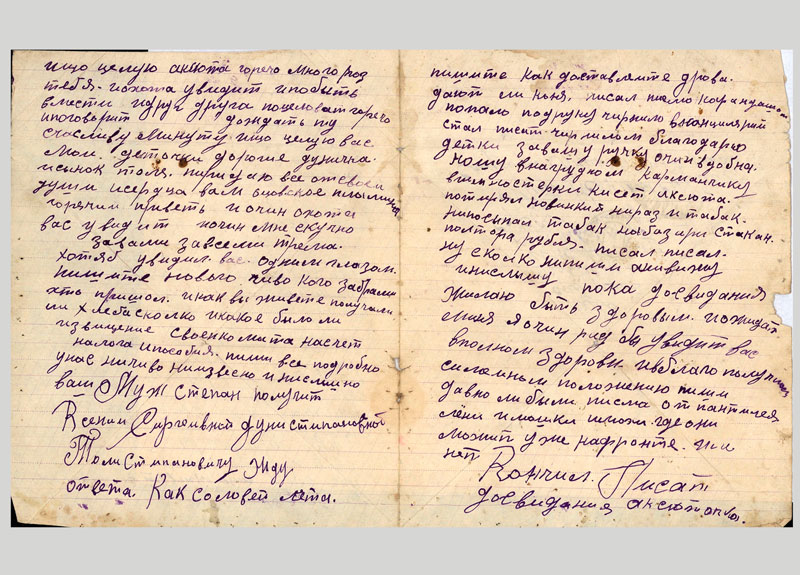 ищо целую аксюта горечо много раз
тебя. похота увидит и побыть
вмести друг друга поцеловат горечо
ипоговорит дождать ту
счасливу минуту ищо целую вас
мои деточки дорогие дунична.
исынок толя. передаю все отсвоей
души исердца вам оцовское пламиня
горячии приветь и очин охота
вас увидит почин мне скучно
завами завсеми трема.
хотяб увидил вас. одним глазом.
пишите нового чиво кого забрали
хто пришол. икак вы живете получали
ли хлеба сколко икакое было ли
извищение своенкомата насчет
налога ипособия. пиши все подробно
унас ничиво ниизвесно инислышно
ваш Муж степан получит
Ксении Сиргеивной дунистипановной
Толистипановичу жду
ответа. Как соловей лета.
пишите как доставляите дрова.
дают ли коня. писал писмо карандашом
попало подруку чирнило вканцилярии
стал писат чирнилом благодарю
детки завашу ручку очин вдобна.
ношу внагрудном карманчику
вшиностерки кисет аксюта.
потирял новинкий нираз и табак.
нипосыпал табак набазари стакан.
полтора рубля. писал писал.
ну сколко нипиши анивижу
инислышу пока досвидания
жилаю быть здоровым. иожидат
миня я очин рад бы увидит вас
вполном здоровю иблаго получии
симейным положению пиши
давно ли были писма от пантилея
лени и мишки ишли где они
можит уже нафронте. или
нет
Кончил. Писат
досвидания аксюточка.